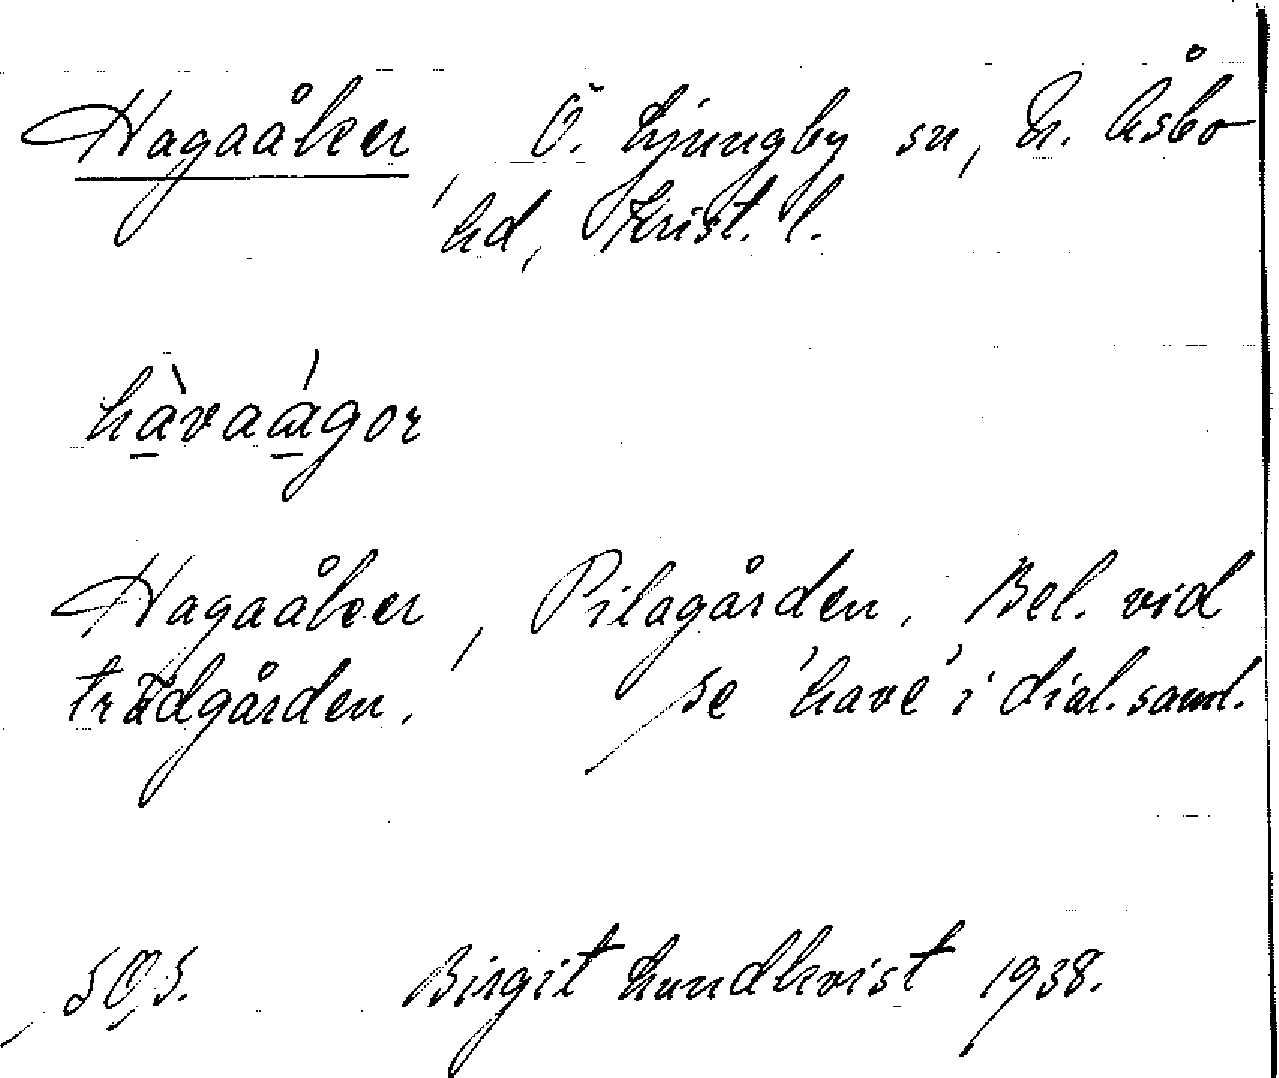 Hagaåker, Ö. Ljungby sn, N. Åsbo
hd, Krist. l.
hàvaágor
Hagaåker, Pilagården. Bel. vid
trädgården. se 'have' i dial. saml.
Birgit Lundkvist 1938.